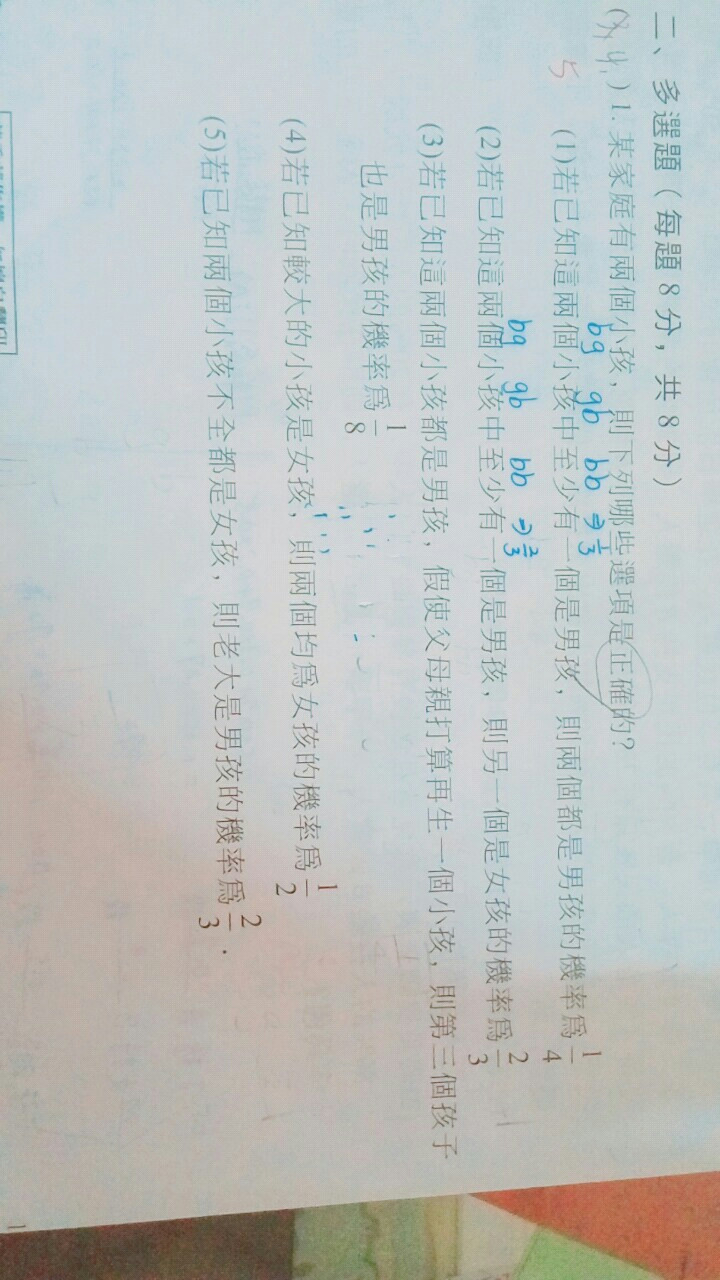 二、多選題（每題 8 分，共 8 分）
( 2, 4, ) 1. 某家庭有兩個小孩，則下列哪些選項是正確的?
5
bg gb bb ⇒ 1/3
(1)若已知這兩個小孩中至少有一個是男孩，則兩個都是男孩的機率爲 1/4
bg gb bb ⇒ 2/3
(2)若已知這兩個小孩中至少有一個是男孩，則另一個是女孩的機率爲 2/3
(3)若已知這兩個小孩都是男孩，假使父母親打算再生一個小孩，則第三個孩子
也是男孩的機率爲 1/8
(4)若已知較大的小孩是女孩，則兩個均爲女孩的機率爲 1/2
(5)若已知兩個小孩不全都是女孩，則老大是男孩的機率爲 2/3．
1